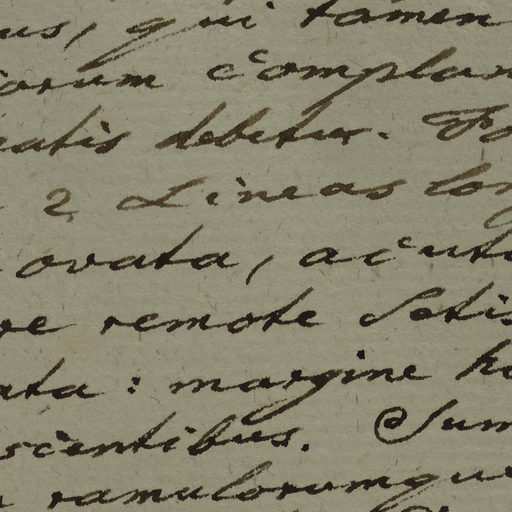 us, qui tamen
iorum complan
atis debetur. Fo
2 Lineas lon
ovata, acuta
re remote Setis
ata: margine
scentibus. Sum
ramulorumque